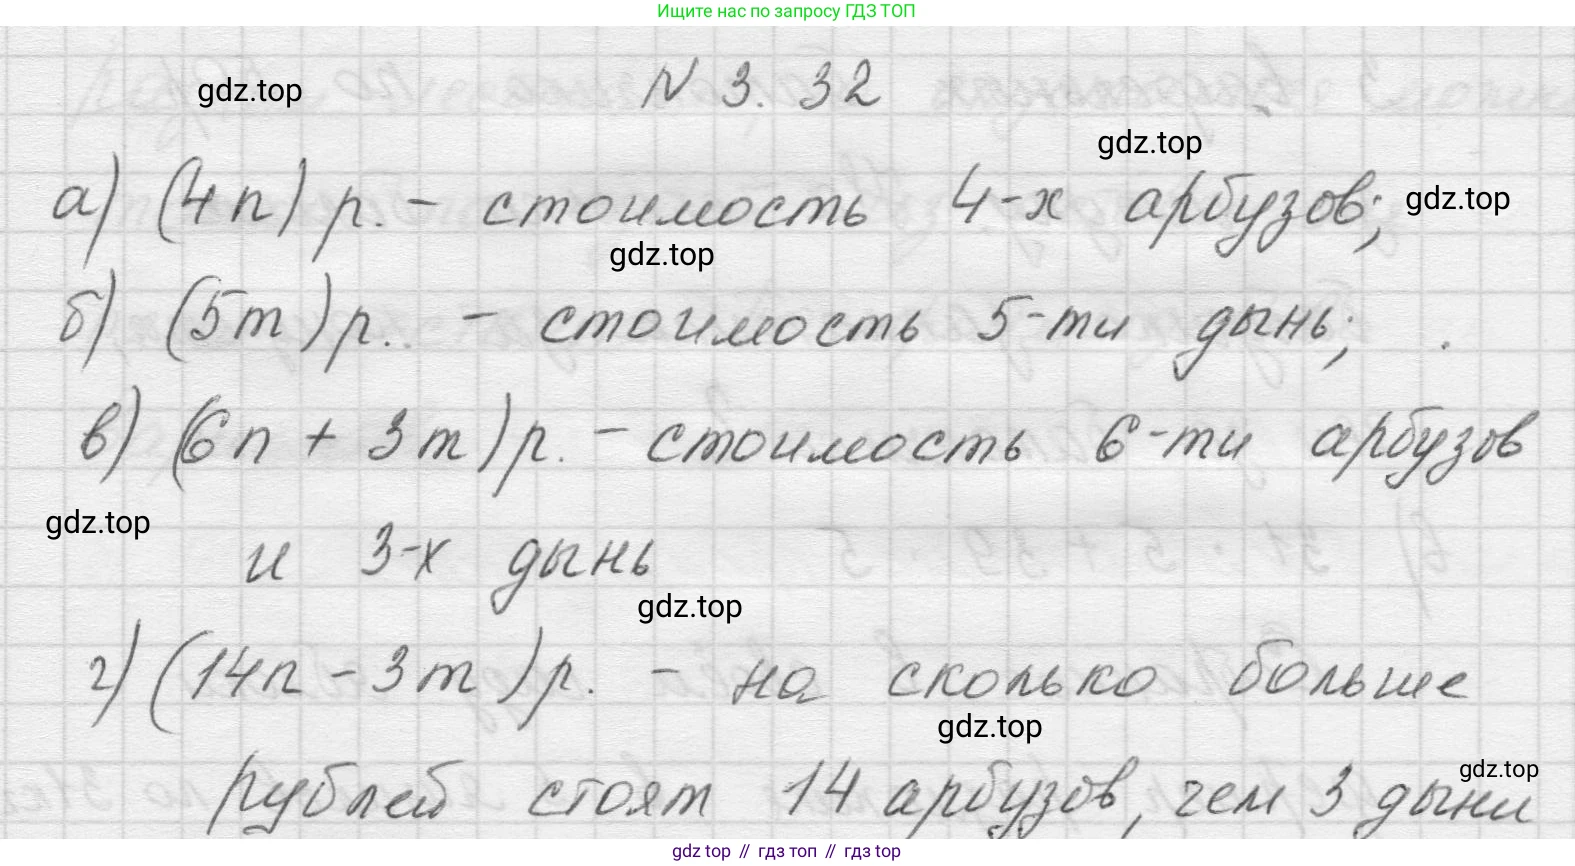 Ищите нас по запросу ГДЗ ТОП
N 3. 32
gdz.top
gdz.top
а) (4n) р. - стоимость 4-х арбузов;
gdz.top
gdz.top
б) (5m) р. - стоимость 5-ти дынь;
в) (6n + 3m) р. - стоимость 6-ти арбузов
gdz.top
и 3-х дынь
gdz.top
г) (14n - 3m) р. - на сколько больше
gdz.top
рублей стоят 14 арбузов, чем 3 дыни
gdz.top
gdz top // гдз топ // гдз top